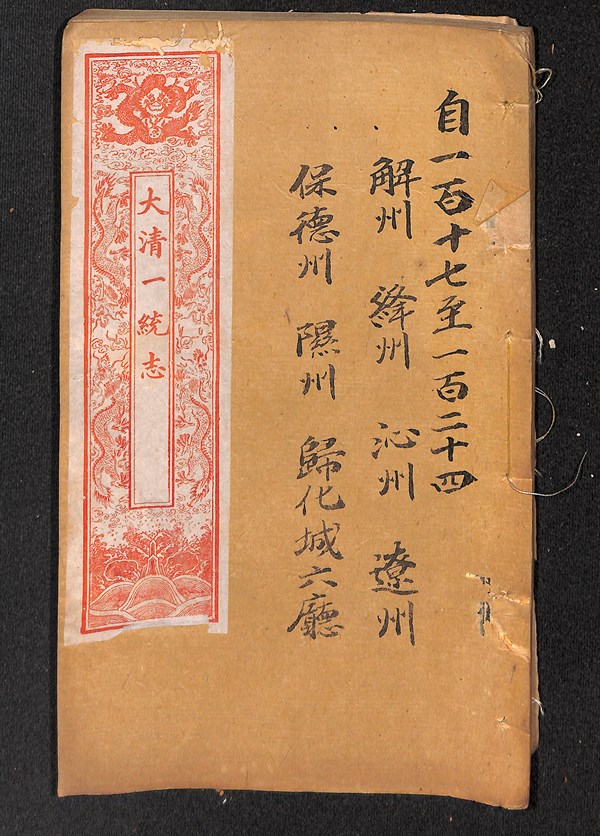 自一百十七至一百二十四
解州 絳州 沁州 遼州
保德州 隰州 歸化城六廳
大清一統志